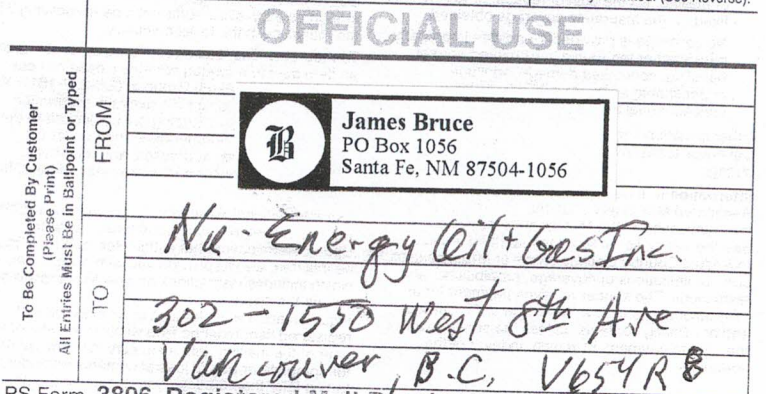 (See Reverse).
OFFICIAL USE
To Be Completed By Customer
(Please Print)
All Entries Must Be in Ballpoint or Typed
FROM
B
James Bruce
PO Box 1056
Santa Fe, NM 87504-1056
TO
Nu-Energy Oil + Gas Inc.
302 - 1550 West 8th Ave
Vancouver, B.C. V654R8
PS Form 3806,